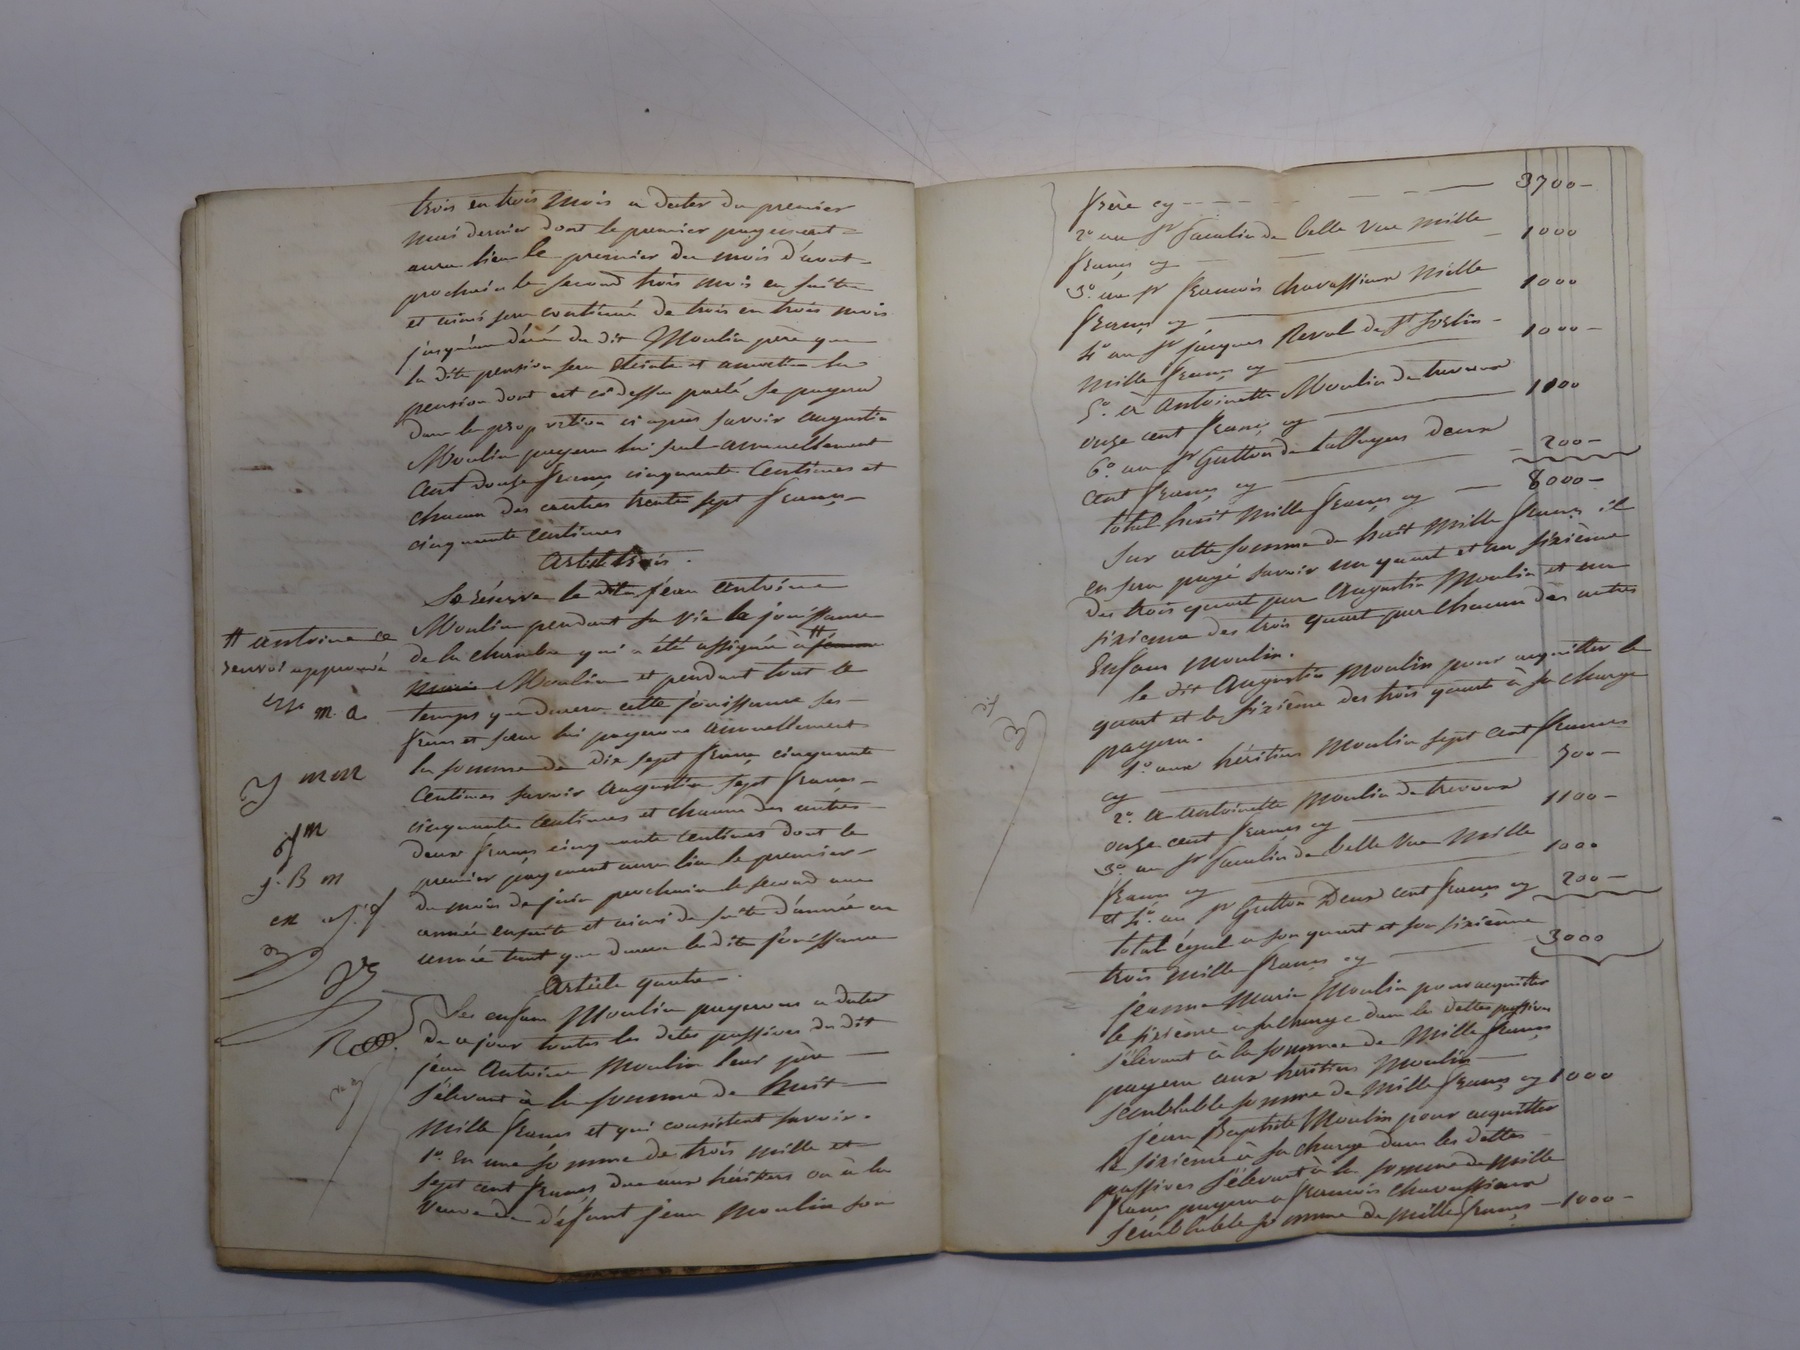 trois en trois mois a dater du premier
mai dernier dont le premier payement
aura lieu le premier du mois d'aout
prochain le second trois mois en suite
et ainsi sera continué de trois en trois mois
jusqu'au décé du dit Moulin père que
la dite pension sera éteinte et amortie la
pension dont est ci dessu parlé se payera
dans la proportion ci après savoir augustin
Moulin payera lui seul annuellement
cent douze francs cinquante centimes et
chacun des autres trente sept francs
cinquante centimes
article trois.
Se réserve le dit jean antoine
Moulin pendant sa vie la jouissance
de la chambre qui a été assignée à # jeanne
marie Moulin et pendant tout le
temps que durera cette jouissance ses
frères et sœur lui payerons annuellement
la somme de dix sept francs cinquante
centimes savoir augustin sept francs
cinquante centimes et chacun des autres
deux francs cinquante centimes dont le
premier payement aura lieu le premier
du mois de juin prochain le second une
année ensuite et ainsi de suite d'année en
année tant que durera la dite jouissance
article quatre.
Les enfans Moulin payerons a dater
de ce jour toutes les dètes passives du dit
jean Antoine Moulin leur père
s'élevant à la somme de huit
mille francs et qui consistent savoir.
1º. En une somme de trois mille et
sept cent francs due aux héritiers ou à la
veuve de défunt jean Moulin son
# antoine ce
renvoi approuvé
m a
m m
j m
j. B m
frère cy 3700
2º au sr de belle vue mille
francs cy 1000
3º. au sr françois chavassieux mille
francs cy 1000
4º au sr jacques Reval de st
mille francs cy 1000
5º. à antoinette Moulin de trevoux
onze cent francs cy 1100
6º au sr Gutton de deux
cent francs cy 200
total huit mille francs cy 8000
Sur cette somme de huit mille francs il
en sera payé savoir un quart et un sixième
des trois quart par Augustin Moulin et un
sixieme des trois quart par chacun des autres
Enfans moulin.
le dit Augustin moulin pour acquitter le
quart et le sixième des trois quarts à sa charge
payera.
1º. aux héritiers Moulin sept cent francs
cy 700
2º. a antoinette moulin de trevoux
onze cent francs cy 1100
3º au sr de belle vue mille
francs cy 1000
et 4º. au sr Gutton deux cent francs cy 200
total égal a son quart et son sixième
trois mille francs cy 3000
jeanne Marie Moulin pour acquitter
le sixième à sa charge dans les dettes passives
s'élevant à la somme de mille francs
payera aux héritiers Moulin
semblable somme de mille francs cy 1000
jean Baptiste Moulin pour acquitter
le sixième à sa charge dans les dettes
passives s'élevant à la somme de mille
francs payera a françois chavassieux
semblable somme de mille francs 1000